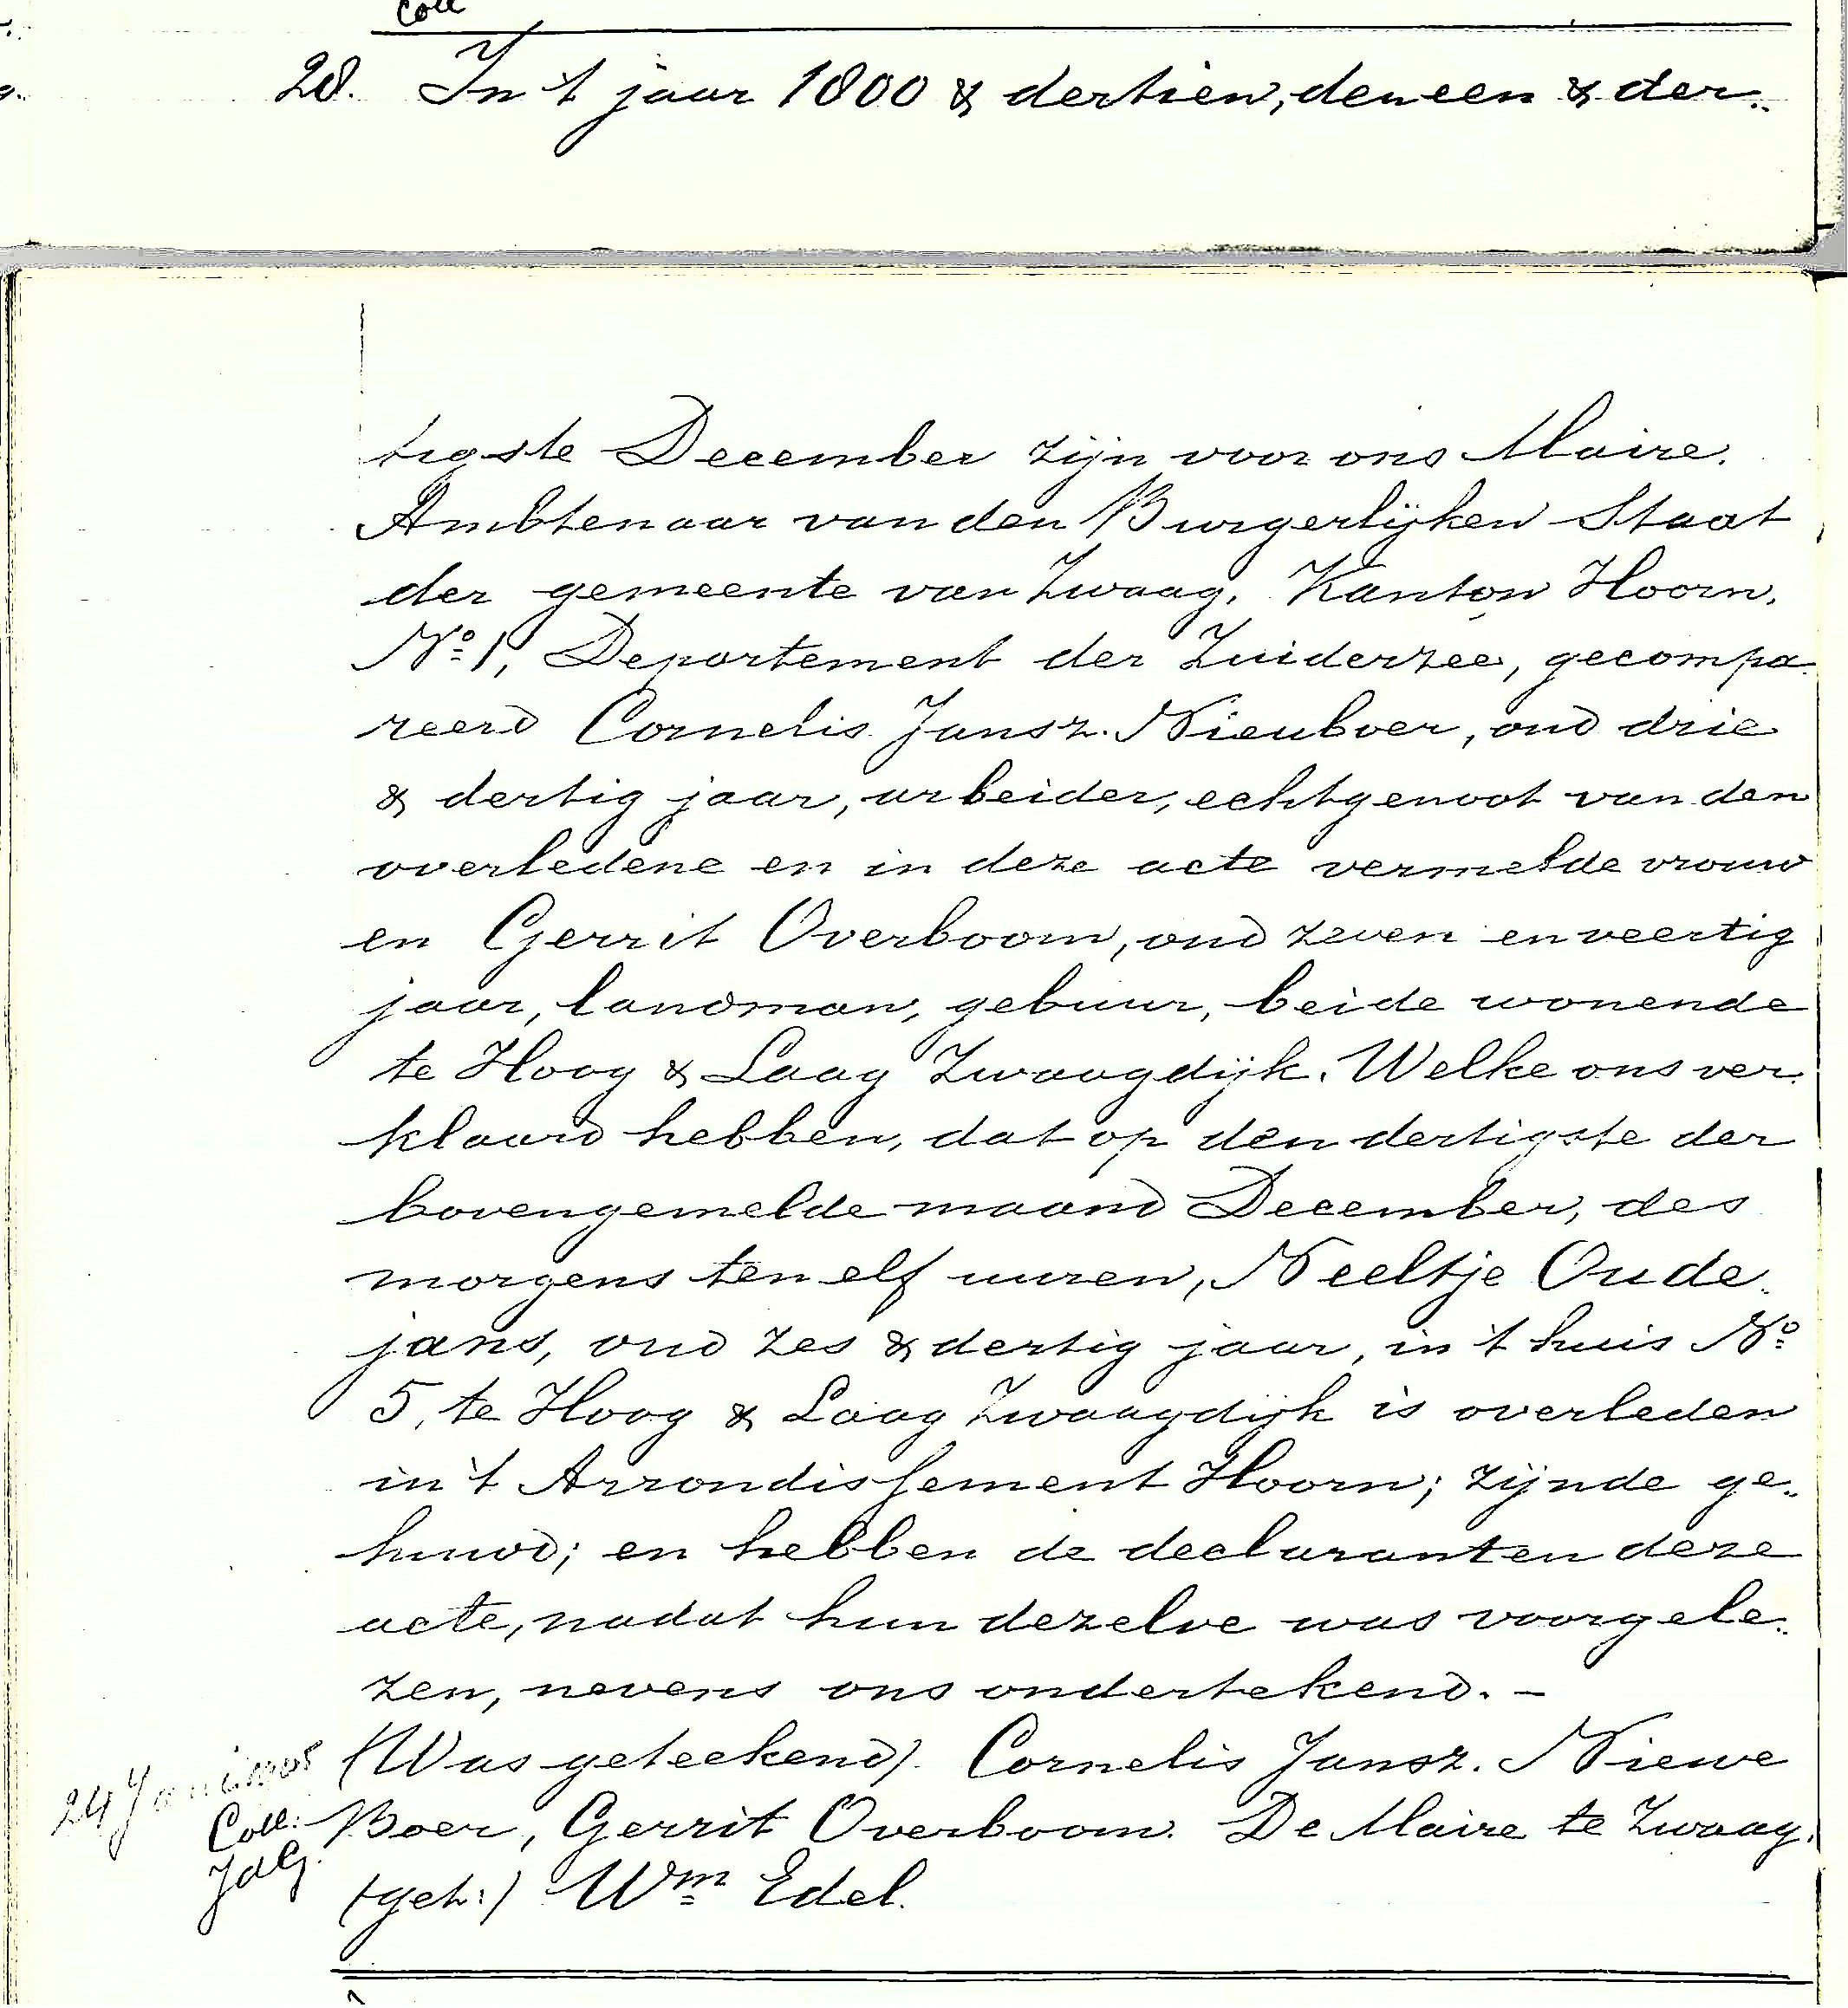 Coll
28. In 't jaar 1800 & dertien, den een & der..
tigste December zijn voor ons Maire.
Ambtenaar van den Burgerlijken Staat
der gemeente van Zwaag, Kanton Hoorn,
No 1, Departement der Zuiderzee, gecompa
reerd Cornelis Jansz. Nieuboer, oud drie
& dertig jaar, arbeider, echtgenoot van den
overledene en in deze acte vermelde vrouw
en Gerrit Overboom, oud zeven en veertig
jaar, landman, gebuur, beide wonende
te Hoog & Laag Zwaagdijk. Welke ons ver.
klaard hebben, dat op den dertigste der
bovengemelde maand December, des
morgens ten elf uuren, Neeltje Oude.
jans, oud zes & dertig jaar, in 't huis No
5, te Hoog & Laag Zwaagdijk is overleden
in 't Arrondissement Hoorn; zijnde ge..
huwd; en hebben de declaranten deze
acte, nadat hun dezelve was voorgele..
zen, nevens ons ondertekend. -
(Was geteekend). Cornelis Jansz. Niewe
24 Coll: Boer, Gerrit Overboom. De Maire te Zwaag.
JdG. (get:) Wm Edel.